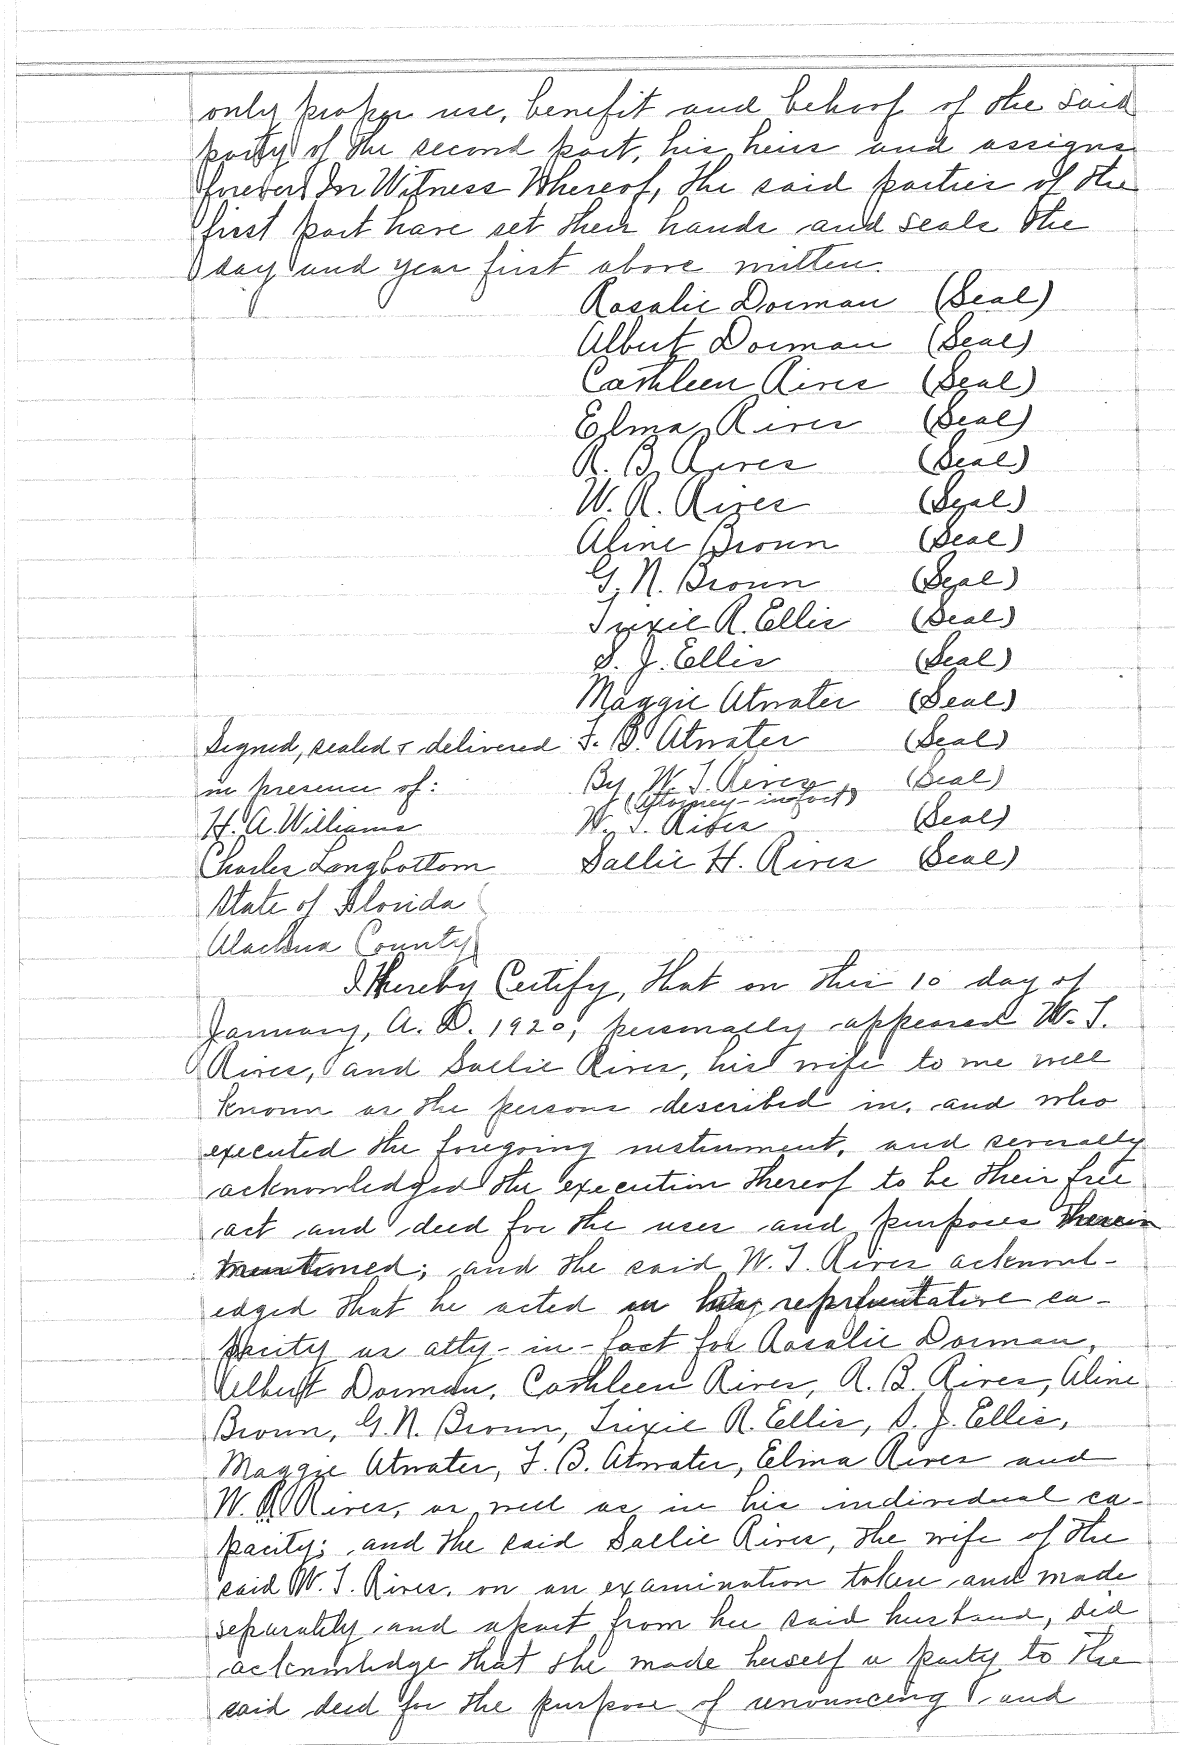 only proper use, benefit and behoof of the said
party of the second part, his heirs and assigns
forever. In Witness Whereof, the said parties of the
first part have set their hands and seals the
day and year first above written.
Rosalie Dorman (Seal)
Albert Dorman (Seal)
Cathleen Rives (Seal)
Elma Rives (Seal)
R. B. Rives (Seal)
W. R. Rives (Seal)
Aline Brown (Seal)
G. N. Brown (Seal)
Trixie R. Ellis (Seal)
S. J. Ellis (Seal)
Maggie Atwater (Seal)
Signed, sealed & delivered F. B. Atwater (Seal)
in presence of: By W. T. Rives (Seal)
(Attorney-in-fact)
H. A. Williams W. T. Rives (Seal)
Charles Longbottom Sallie H. Rives (Seal)
State of Florida
Alachua County
I Hereby Certify, that on this 10 day of
January, A. D. 1920, personally appeared W. T.
Rives, and Sallie Rives, his wife to me well
known as the persons described in, and who
executed the foregoing instrument, and severally
acknowledged the execution thereof to be their free
act and deed for the uses and purposes therein
mentioned; and the said W. T. Rives acknowl-
edged that he acted in his representative ca-
pacity as atty-in-fact for Rosalie Dorman,
Albert Dorman, Cathleen Rives, R. B. Rives, Aline
Brown, G. N. Brown, Trixie R. Ellis, S. J. Ellis,
Maggie Atwater, F. B. Atwater, Elma Rives and
W. R. Rives, as well as in his individual ca-
pacity; and the said Sallie Rives, the wife of the
said W. T. Rives, on an examination taken and made
separately and apart from her said husband, did
acknowledge that she made herself a party to the
said deed for the purpose of renouncing and